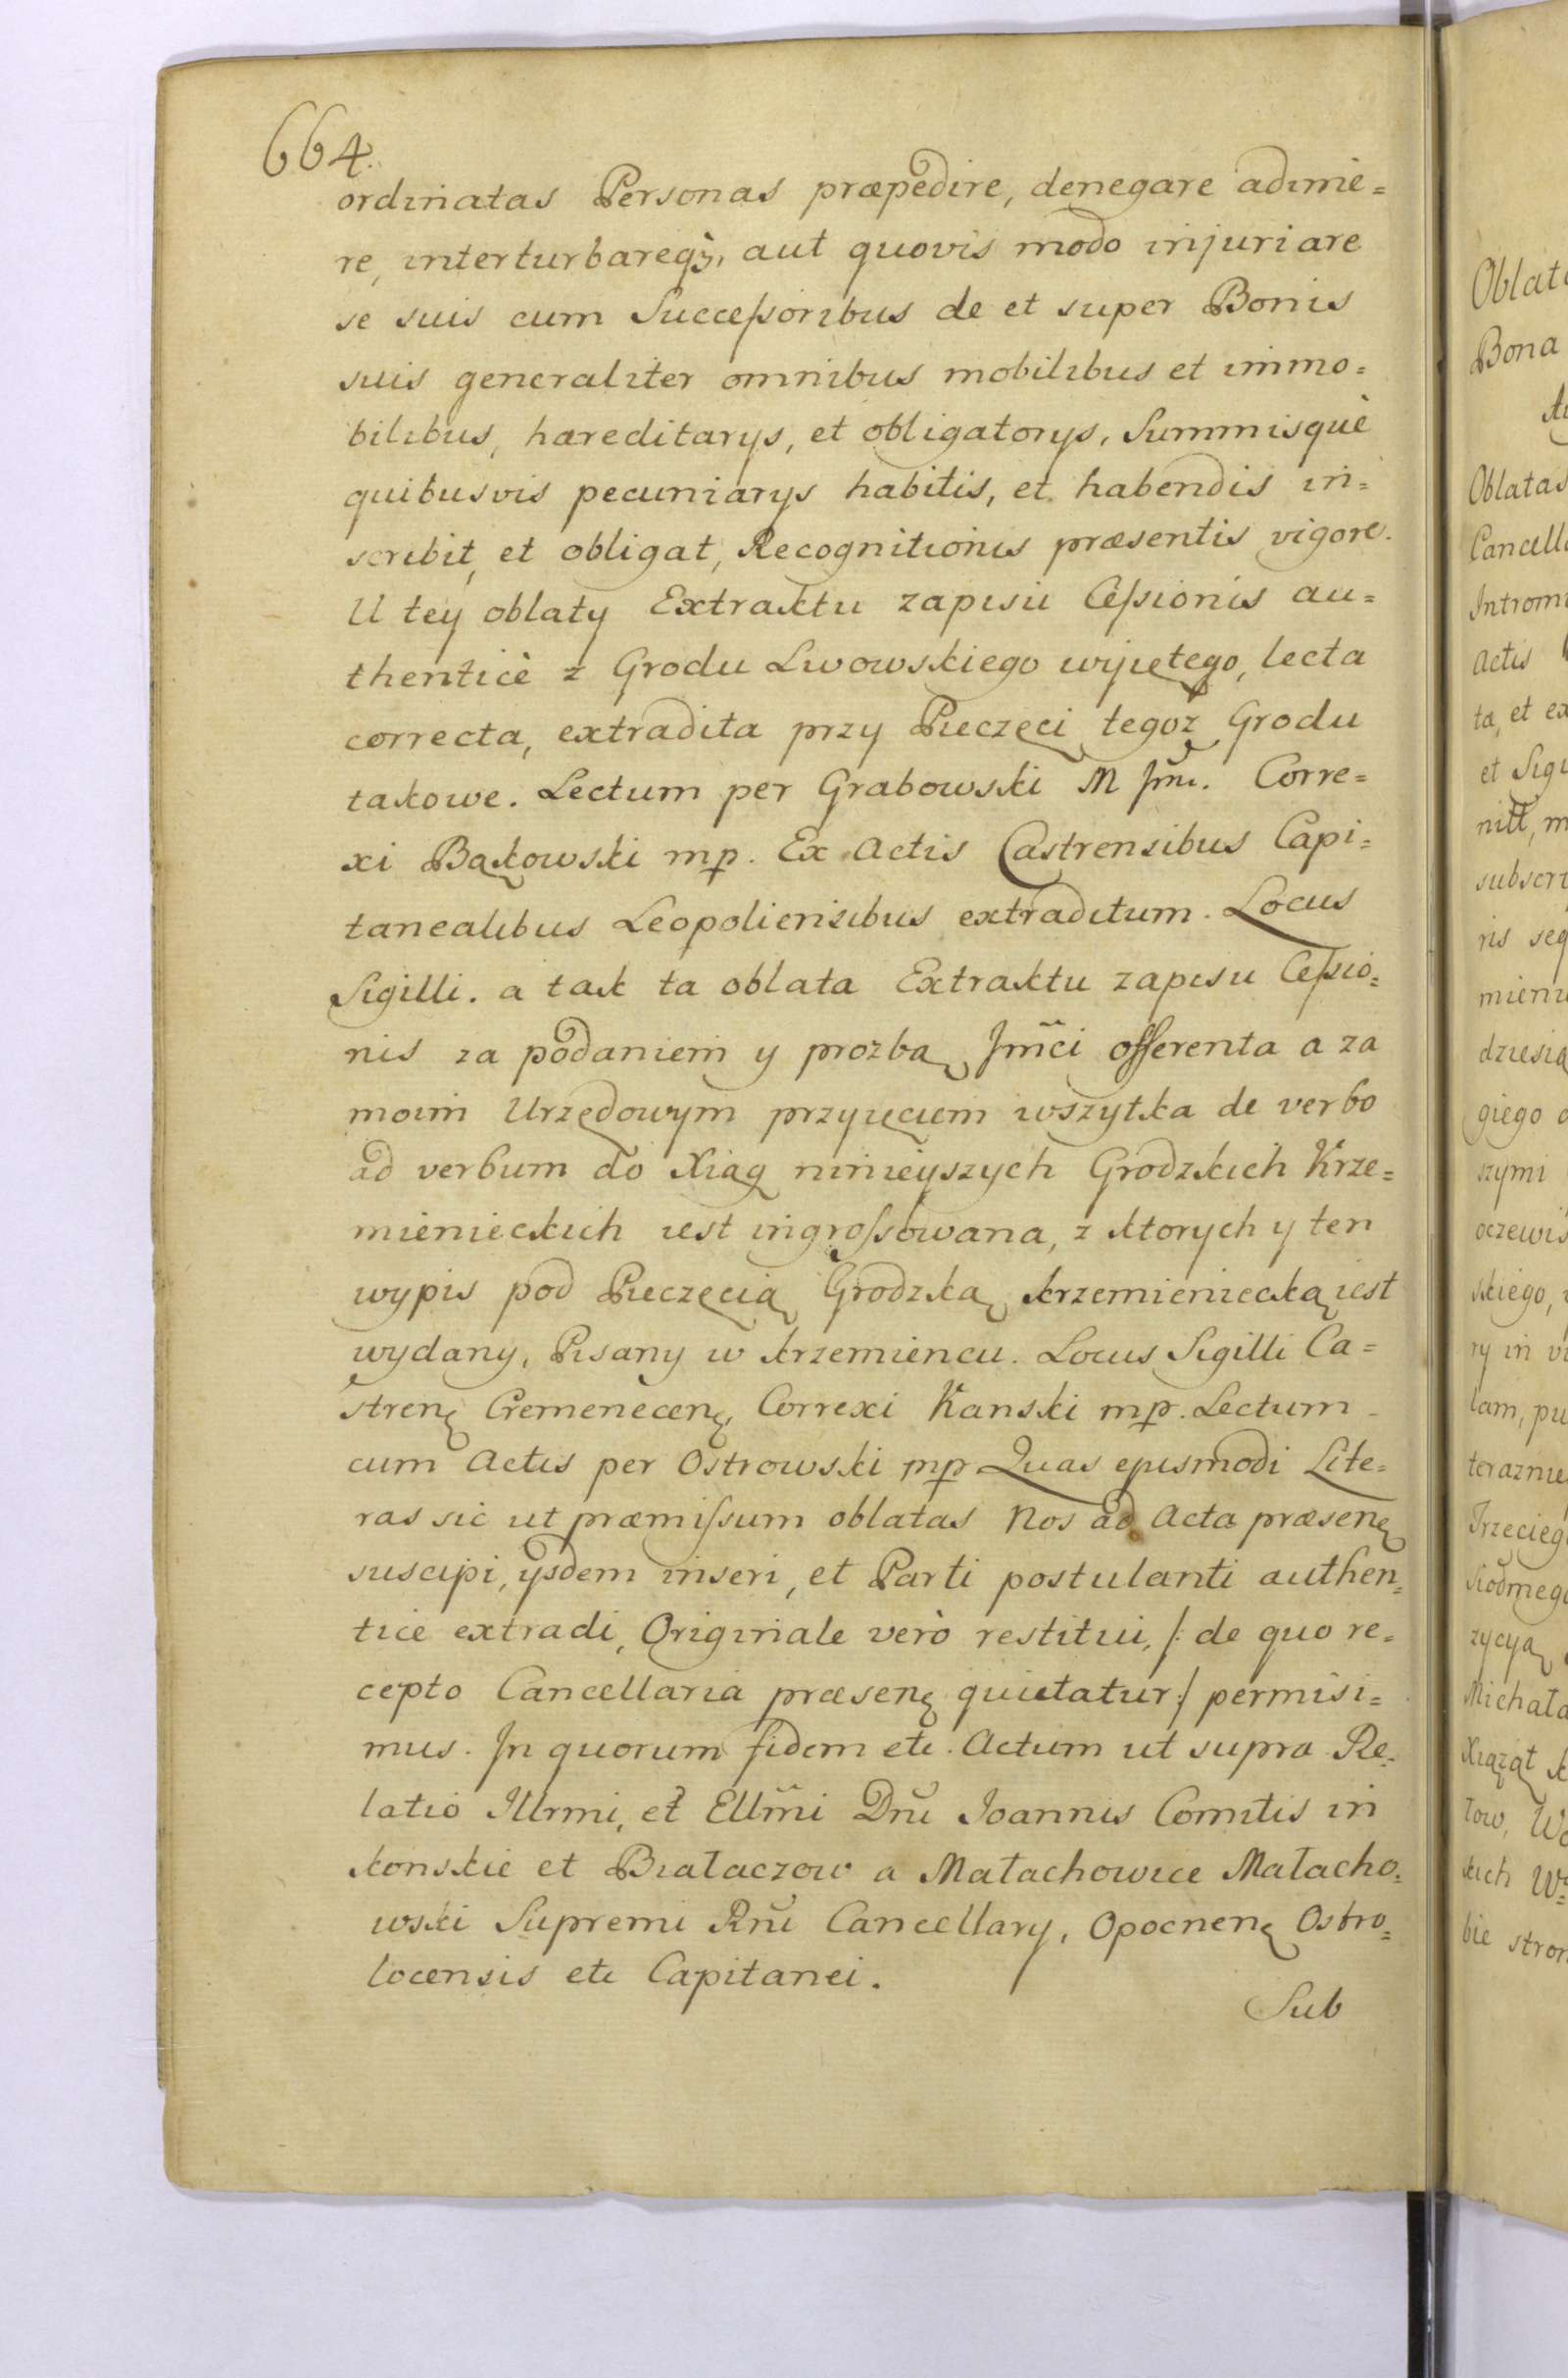 664.
ordinatas Personas præpedire, denegare adime=
re, interturbareqȝ, aut quovis modo injuriare
se suis cum Successoribus de et super Bonis
suis generaliter omnibus mobilibus et immo=
bilibus, hæreditarys, et obligatorys, Summisquè
quibusvis pecuniarys habitis, et habendis in=
scribit, et obligat, Recognitionis præsentis vigore.
U tey oblaty Extraktu zapisu Cessionis au=
thenticè z Grodu Lwowskiego wyiętego, lecta
correcta, extradita przy Pieczęci tegoż Grodu
takowe. Lectum per Grabowski M Jmi. Corre=
xi Bąkowski mp. Ex Actis Castrensibus Capi=
tanealibus Leopoliensibus extraditum. Locus
Sigilli. a tak ta oblata Extraktu zapisu Cessio=
nis za podaniem y prozbą Jm̃ci offerenta a za
moim Urzędowym przyięciem wszytka de verbo
ad verbum do Xiąg ninieyszych Grodzkich Krze=
mienieckich iest ingrossowana, z ktorych y ten
wypis pod Pieczęcią Grodzką krzemieniecką iest
wydany, Pisany w krzemiencu. Locus Sigilli Ca=
stren̨ Cremenecen̨, Correxi Kanski mp. Lectum
cum Actis per Ostrowski mp Quas ejusmodi Lite=
ras sic ut præmissum oblatas Nos ad Acta præsen̨
suscipi, ysdem inseri, et Parti postulanti authen=
tice extradi, Originale verò restitui, /: de quo re=
cepto Cancellaria præsen̨ quietatur:/ permisi=
mus. In quorum fidem etc. Actum ut supra Re=
latio Illrmi, et Ellm̃i Dnĩ Joannis Comitis in
konskie et Białaczow a Małachowice Małacho=
wski Supremi Rnĩ Cancellary, Opocnen̨ Ostro=
locensis etc Capitanei.
Sub
Oblat
Bona
Oblatas
Cancella
Intromi
Actis
ta, et ex
et Sigi
nitt, m
subscri
ris seq
mieni
dziesią
giego
szymi
oczewis
skiego,
ry in vi
lam, pu
teraznie
Trzecieg
Siodmego
zycyą
Michała
Xiążąt
low, Wo
kich
bie stron